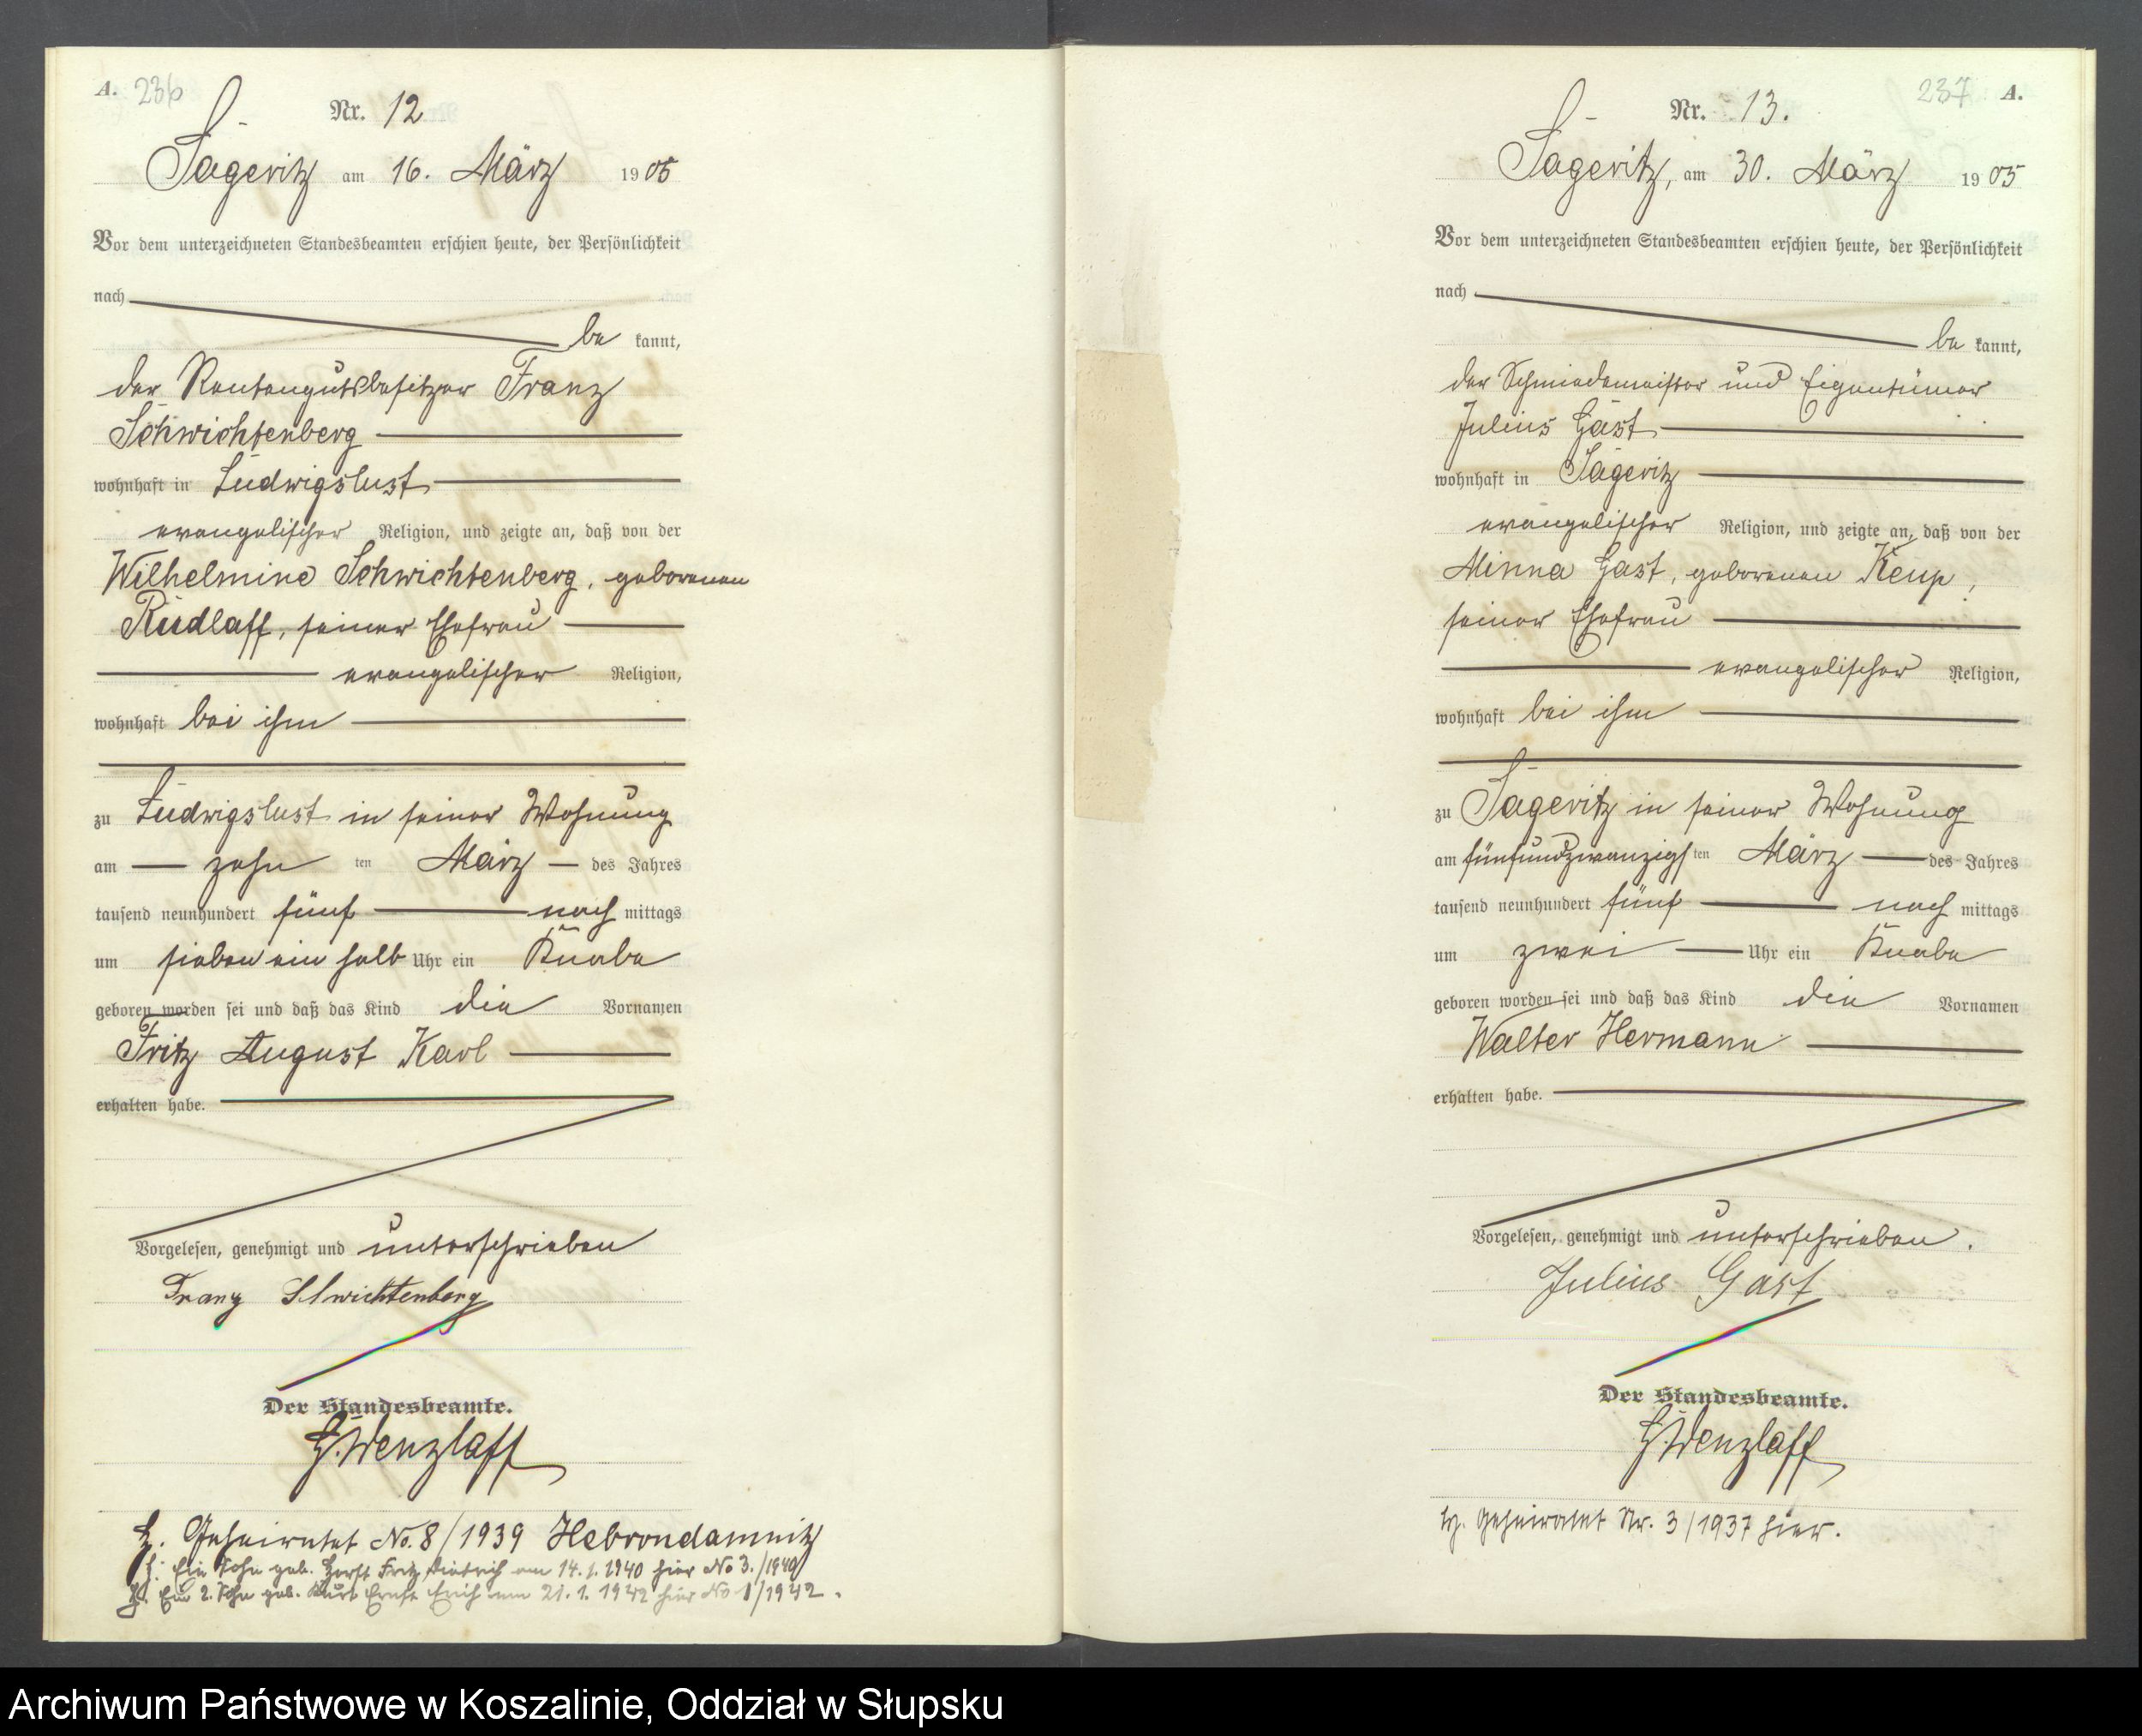 A. 236
Nr. 12
Sageritz am 16. März 1905
Vor dem unterzeichneten Standesbeamten erschien heute, der Persönlichkeit
nach
be kannt,
der Rentengutsbesitzer Franz
Schwichtenberg
wohnhaft in Ludwigslust
evangelischer Religion, und zeigte an, daß von der
Wilhelmine Schwichtenberg, geborenen
Rudlaff, seiner Ehefrau
evangelischer Religion,
wohnhaft bei ihm
zu Ludwigslust in seiner Wohnung
am zehn ten März des Jahres
tausend neunhundert fünf nach mittags
um sieben ein halb Uhr ein Knabe
geboren worden sei und daß das Kind die Vornamen
Fritz August Karl
erhalten habe.
Vorgelesen, genehmigt und unterschrieben
Franz Schwichtenberg
Der Standesbeamte.
Wenzlaff
Geheiratet No. 8/1939 Hebrondamnitz
Ein Sohn geb. Horst Fritz Dietrich am 14. 1. 1940 hier No 3./1940
Ein 2. Sohn geb. Kurt Ernst Erich am 21. 1. 1942 hier No 1/1942.
237 A.
Nr. 13.
Sageritz, am 30. März 1905
Vor dem unterzeichneten Standesbeamten erschien heute, der Persönlichkeit
nach
be kannt,
der Schmiedemeister und Eigentümer
Julius Gast
wohnhaft in Sageritz
evangelischer Religion, und zeigte an, daß von der
Minna Gast, geborenen Keup,
seiner Ehefrau
evangelischer Religion,
wohnhaft bei ihm
zu Sageritz in seiner Wohnung
am fünfundzwanzigs ten März des Jahres
tausend neunhundert fünf nach mittags
um zwei Uhr ein Knabe
geboren worden sei und daß das Kind die Vornamen
Walter Hermann
erhalten habe.
Vorgelesen, genehmigt und unterschrieben.
Julius Gast
Der Standesbeamte.
Wenzlaff
Geheiratet Nr. 3/1937 hier.
Archiwum Państwowe w Koszalinie, Oddział w Słupsku